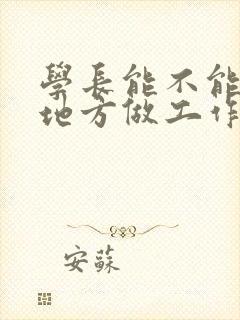 學長能不能
地方做工作
安蘇